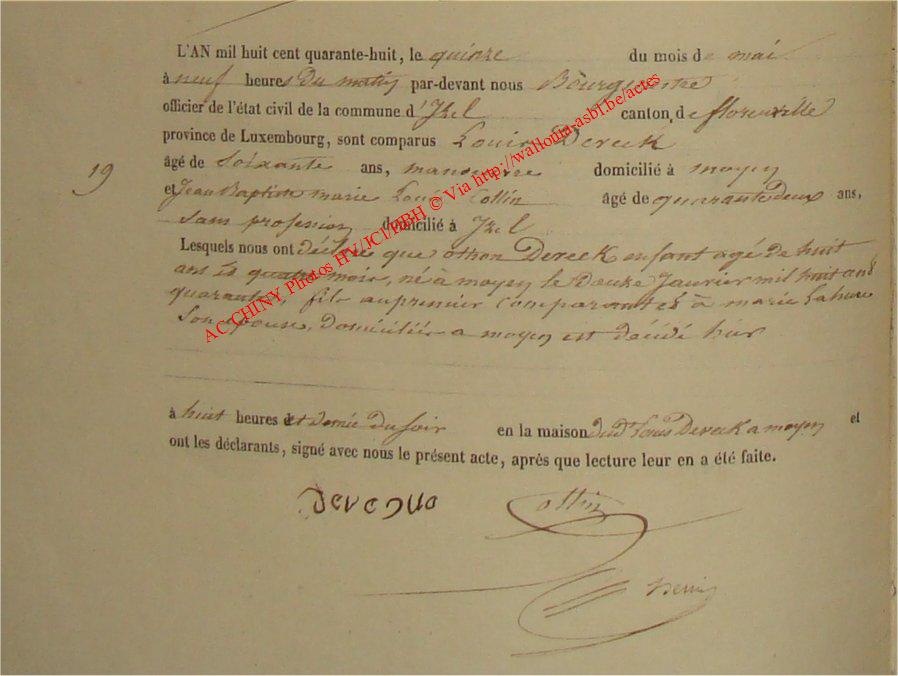 L'AN mil huit cent quarante-huit, le quinze du mois de mai
à neuf heures du matin par-devant nous Bourgmestre
officier de l'état civil de la commune d'Izel canton de florenville
province de Luxembourg, sont comparus Louis Dereck
âgé de Soixante ans, manoeuvre domicilié à moyen
19
et Jean Baptiste marie Louis Collin âgé de quarante deux ans,
sans profession domicilié à Izel
Lesquels nous ont déclaré que othon Dereck enfant agé de huit
ans et quatre mois, né à moyen le Douze Janvier mil huit cent
quarante, fils au premier Comparant et à marie Lahure
Son epouse, Domiciliée a moyen est décédé hier
à huit heures et demie du soir en la maison dud Louis Dereck a moyen et
ont les déclarants, signé avec nous le présent acte, après que lecture leur en a été faite.
Collin
AC CHINY Photos HV/JCI/PBH © Via http://wallonia-asbl.be/actes